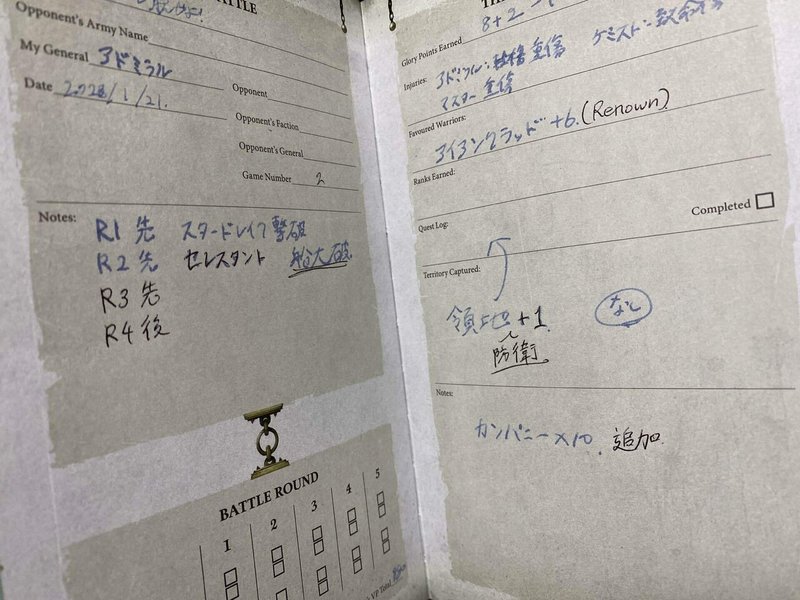 TTLE
Opponent's Army Name
My General アドミラル
Date 2023/1/21.
Opponent
Opponent's Faction
Opponent's General
Game Number 2
Notes:
R1 先 スタードレイク撃破
R2 先 セレスタント 船大破
R3 先
R4 後
BATTLE ROUND
1 2 3 4 5
VP Total
TH
Glory Points Earned 8+2
Injuries: アドミラル: 重傷 ケミスト: 致命傷
マスター 重傷
Favoured Warriors:
アイアンクラッド +6 (Renown)
Ranks Earned:
Quest Log:
Completed
Territory Captured:
領地+1 なし
防衛
Notes:
カンパニー×10 追加